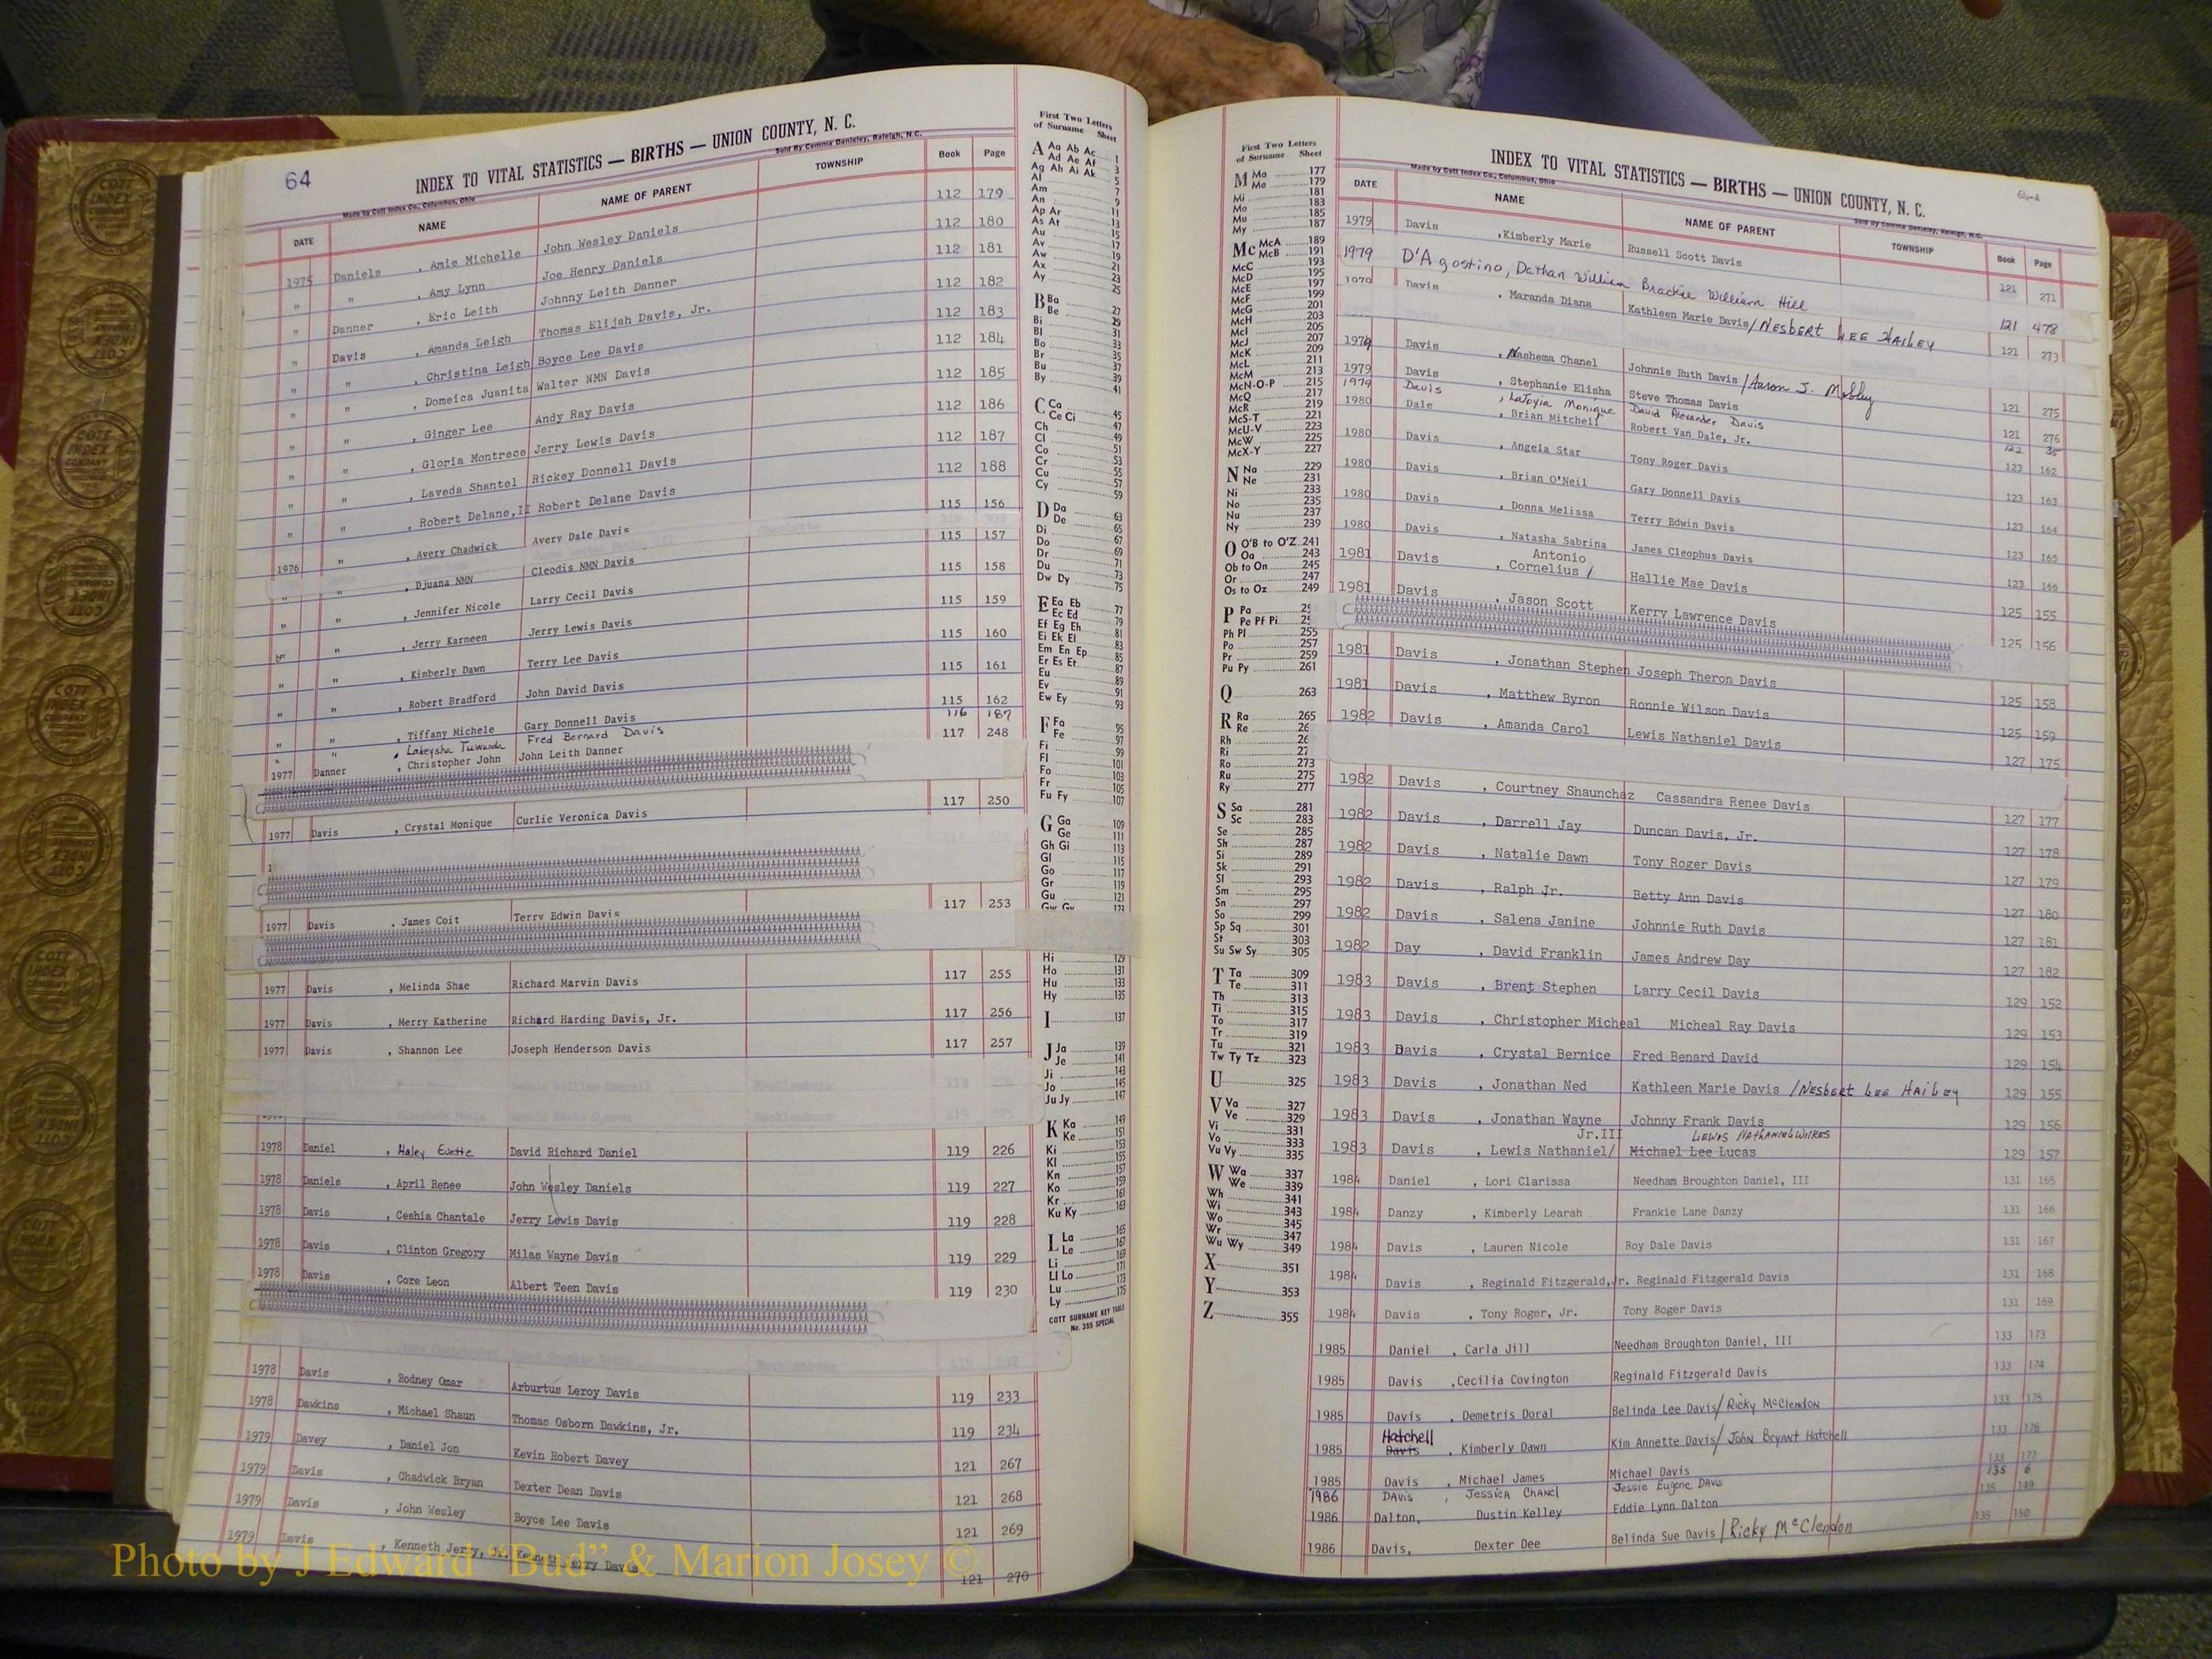 64
INDEX TO VITAL STATISTICS — BIRTHS — UNION COUNTY, N. C.
Made by Cott Index Co., Columbus, Ohio
Sold By Comma Danieley, Raleigh, N.C.
DATE NAME NAME OF PARENT TOWNSHIP Book Page
1975 Daniels , Amie Michelle John Wesley Daniels 112 179
" " , Amy Lynn Joe Henry Daniels 112 180
" Danner , Eric Leith Johnny Leith Danner 112 181
" Davis , Amanda Leigh Thomas Elijah Davis, Jr. 112 182
" " , Christina Leigh Boyce Lee Davis 112 183
" " , Domeica Juanita Walter NMN Davis 112 184
" " , Ginger Lee Andy Ray Davis 112 185
" " , Gloria Montrece Jerry Lewis Davis 112 186
" " , Laveda Shantel Rickey Donnell Davis 112 187
" " , Robert Delane, II Robert Delane Davis 112 188
1976 " , Avery Chadwick Avery Dale Davis 115 156
" " , Djuana NMN Cleodis NMN Davis 115 157
" " , Jennifer Nicole Larry Cecil Davis 115 158
" " , Jerry Karneen Jerry Lewis Davis 115 159
" " , Kimberly Dawn Terry Lee Davis 115 160
" " , Robert Bradford John David Davis 115 161
" " , Tiffany Michele Gary Donnell Davis 115 162
" " , Lakeysha Tuwanda Fred Bernard Davis 116 187
1977 Danner , Christopher John John Leith Danner 117 248
1977 Davis , Crystal Monique Curlie Veronica Davis 117 250
1977 Davis , James Coit Terry Edwin Davis 117 253
1977 Davis , Melinda Shae Richard Marvin Davis 117 255
1977 Davis , Merry Katherine Richard Harding Davis, Jr. 117 256
1977 Davis , Shannon Lee Joseph Henderson Davis 117 257
1978 Daniel , Haley Evette David Richard Daniel 119 226
1978 Daniels , April Renee John Wesley Daniels 119 227
1978 Davis , Ceshia Chantale Jerry Lewis Davis 119 228
1978 Davis , Clinton Gregory Milas Wayne Davis 119 229
1978 Davis , Core Leon Albert Teen Davis 119 230
1978 Davis , Rodney Omar Arburtus Leroy Davis 119 233
1978 Dawkins , Michael Shaun Thomas Osborn Dawkins, Jr. 119 234
1979 Davey , Daniel Jon Kevin Robert Davey 121 267
1979 Davis , Chadwick Bryan Dexter Dean Davis 121 268
1979 Davis , John Wesley Boyce Lee Davis 121 269
1979 Davis , Kenneth Jerry, Jr. Kenneth Jerry Davis 121 270
First Two Letters
of Surname Sheet
A Aa Ab Ac 1
Ad Ae Af 3
Ag Ah Ai Ak 5
Al 7
Am 9
An 11
Ap Ar 13
As At 15
Au 17
Av 19
Aw 21
Ax 23
Ay 25
B Ba 27
Be 29
Bi 31
Bl 33
Bo 35
Br 37
Bu 39
By 41
C Ca 45
Ce Ci 47
Ch 49
Cl 51
Co 53
Cr 55
Cu 57
Cy 59
D Da 63
De 65
Di 67
Do 69
Dr 71
Du 73
Dw Dy 75
E Ea Eb 77
Ec Ed 79
Ef Eg Eh 81
Ei Ek El 83
Em En Ep 85
Er Es Et 87
Eu 89
Ev 91
Ew Ey 93
F Fa 95
Fe 97
Fi 99
Fl 101
Fo 103
Fr 105
Fu Fy 107
G Ga 109
Ge 111
Gh Gi 113
Gl 115
Go 117
Gr 119
Gu 121
Gw Gy 123
Hi 129
Ho 131
Hu 133
Hy 135
I 137
J Ja 139
Je 141
Ji 143
Jo 145
Ju Jy 147
K Ka 149
Ke 151
Ki 153
Kl 155
Kn 157
Ko 159
Kr 161
Ku Ky 163
L La 165
Le 167
Li 169
Ll Lo 171
Lu 173
Ly 175
COTT SURNAME KEY TABLE
No. 355 SPECIAL
First Two Letters
of Surname Sheet
M Ma 177
Me 179
Mi 181
Mo 183
Mu 185
My 187
Mc McA 189
McB 191
McC 193
McD 195
McE 197
McF 199
McG 201
McH 203
McI 205
McJ 207
McK 209
McL 211
McM 213
McN-O-P 215
McQ 217
McR 219
McS-T 221
McU-V 223
McW 225
McX-Y 227
N Na 229
Ne 231
Ni 233
No 235
Nu 237
Ny 239
O O'B to O'Z 241
Oa 243
Ob to On 245
Or 247
Os to Oz 249
P Pa
Pe Pf Pi
Ph Pl 255
Po 257
Pr 259
Pu Py 261
Q 263
R Ra 265
Re
Rh
Ri
Ro 273
Ru 275
Ry 277
S Sa 281
Sc 283
Se 285
Sh 287
Si 289
Sk 291
Sl 293
Sm 295
Sn 297
So 299
Sp Sq 301
St 303
Su Sw Sy 305
T Ta 309
Te 311
Th 313
Ti 315
To 317
Tr 319
Tu 321
Tw Ty Tz 323
U 325
V Va 327
Ve 329
Vi 331
Vo 333
Vu Vy 335
W Wa 337
We 339
Wh 341
Wi 343
Wo 345
Wr 347
Wu Wy 349
X 351
Y 353
Z 355
64-A
INDEX TO VITAL STATISTICS — BIRTHS — UNION COUNTY, N. C.
Made by Cott Index Co., Columbus, Ohio
Sold By Comma Danieley, Raleigh, N.C.
DATE NAME NAME OF PARENT TOWNSHIP Book Page
1979 Davis , Kimberly Marie Russell Scott Davis 121 271
1979 D'Agostino, Dathan William Brackie William Hill 121 478
1979 Davis , Maranda Diana Kathleen Marie Davis/NESBERT LEE HAILEY 121 273
1979 Davis , Nashema Chanel Johnnie Ruth Davis/Aason J. Mobley 121 275
1979 Davis , Stephanie Elisha Steve Thomas Davis 121 276
1979 Davis , LaToyia Monique David Alexander Davis 122 35
1980 Dale , Brian Mitchell Robert Van Dale, Jr. 123 162
1980 Davis , Angela Star Tony Roger Davis 123 163
1980 Davis , Brian O'Neil Gary Donnell Davis 123 164
1980 Davis , Donna Melissa Terry Edwin Davis 123 165
1980 Davis , Natasha Sabrina James Cleophus Davis 123 166
Antonio
1981 Davis , Cornelius / Hallie Mae Davis 125 155
1981 Davis , Jason Scott Kerry Lawrence Davis 125 156
1981 Davis , Jonathan Stephen Joseph Theron Davis 125 158
1981 Davis , Matthew Byron Ronnie Wilson Davis 125 159
1982 Davis , Amanda Carol Lewis Nathaniel Davis 127 175
1982 Davis , Courtney Shaunchaz Cassandra Renee Davis 127 177
1982 Davis , Darrell Jay Duncan Davis, Jr. 127 178
1982 Davis , Natalie Dawn Tony Roger Davis 127 179
1982 Davis , Ralph Jr. Betty Ann Davis 127 180
1982 Davis , Salena Janine Johnnie Ruth Davis 127 181
1982 Day , David Franklin James Andrew Day 127 182
1983 Davis , Brent Stephen Larry Cecil Davis 129 152
1983 Davis , Christopher Micheal Micheal Ray Davis 129 153
1983 Davis , Crystal Bernice Fred Benard David 129 154
1983 Davis , Jonathan Ned Kathleen Marie Davis /NESBERT LEE HAILEY 129 155
1983 Davis , Jonathan Wayne Johnny Frank Davis 129 156
Jr.III LEWIS NATHANIEL WILKES
1983 Davis , Lewis Nathaniel/ Michael Lee Lucas 129 157
1984 Daniel , Lori Clarissa Needham Broughton Daniel, III 131 165
1984 Danzy , Kimberly Learah Frankie Lane Danzy 131 166
1984 Davis , Lauren Nicole Roy Dale Davis 131 167
1984 Davis , Reginald Fitzgerald, Jr. Reginald Fitzgerald Davis 131 168
1984 Davis , Tony Roger, Jr. Tony Roger Davis 131 169
1985 Daniel , Carla Jill Needham Broughton Daniel, III 133 173
1985 Davis , Cecilia Covington Reginald Fitzgerald Davis 133 174
1985 Davis , Demetris Doral Belinda Lee Davis/Ricky McClendon 133 175
Hatchell
1985 Davis , Kimberly Dawn Kim Annette Davis/John Bryant Hatchell 133 176
1985 Davis , Michael James Michael Davis 133 177
1986 DAVIS , JESSICA CHANEL Jessie Eugene DAVIS 135 6
1986 Dalton, Dustin Kelley Eddie Lynn Dalton 135 149
1986 Davis, Dexter Dee Belinda Sue Davis/Ricky McClendon 135 150
Photo by J Edward "Bud" & Marion Josey ©